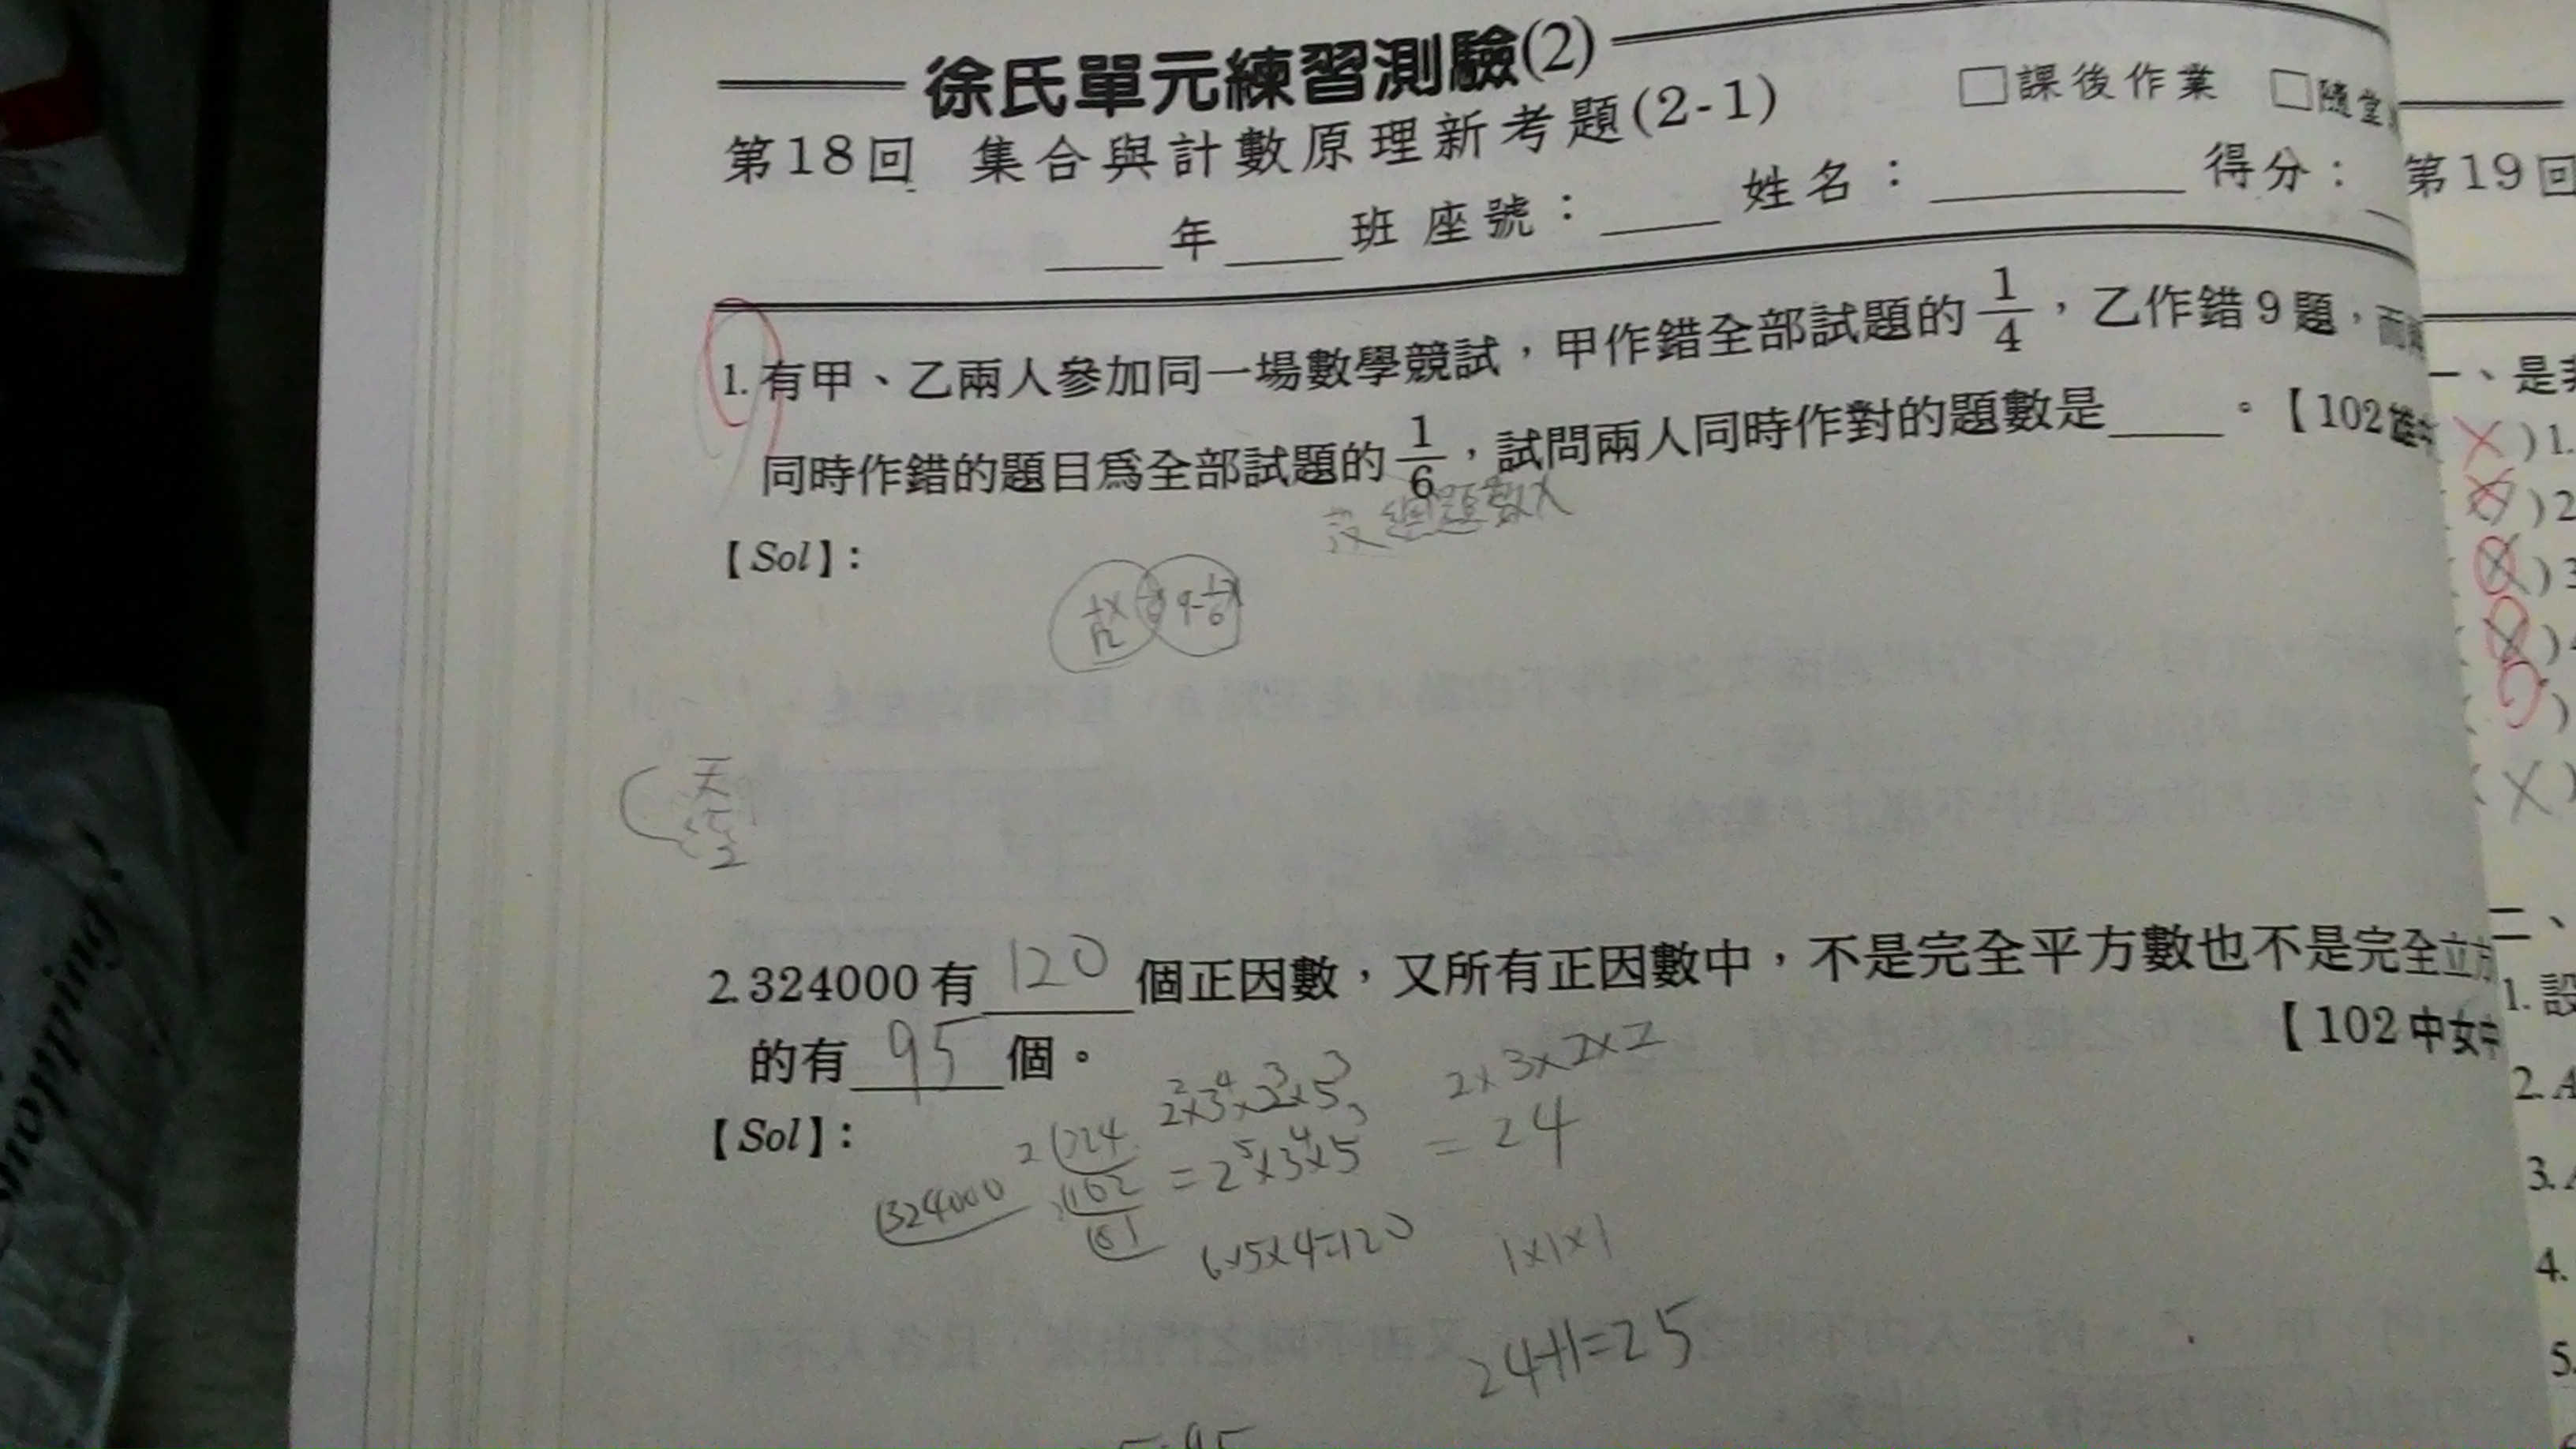 徐氏單元練習測驗(2)
第18回 集合與計數原理新考題(2-1) □課後作業 □隨堂
年 班 座號： 姓名： 得分：
1. 有甲、乙兩人參加同一場數學競試，甲作錯全部試題的 1/4，乙作錯9題，而
同時作錯的題目爲全部試題的 1/6，試問兩人同時作對的題數是____。【102雄
設總題數x
【Sol】：
2. 324000有 120 個正因數，又所有正因數中，不是完全平方數也不是完全立方
的有 95 個。
【102中女中
【Sol】：
2²×3⁴×2³×5³
2×3×2×2
=2⁵×3⁴×5³
=24
324000
2 324
162
81
6×5×4=120
1×1×1
24+1=25
第19回
一、是非
)1.
)2
)3
二、
1. 設
2. A
3.
4.
5.